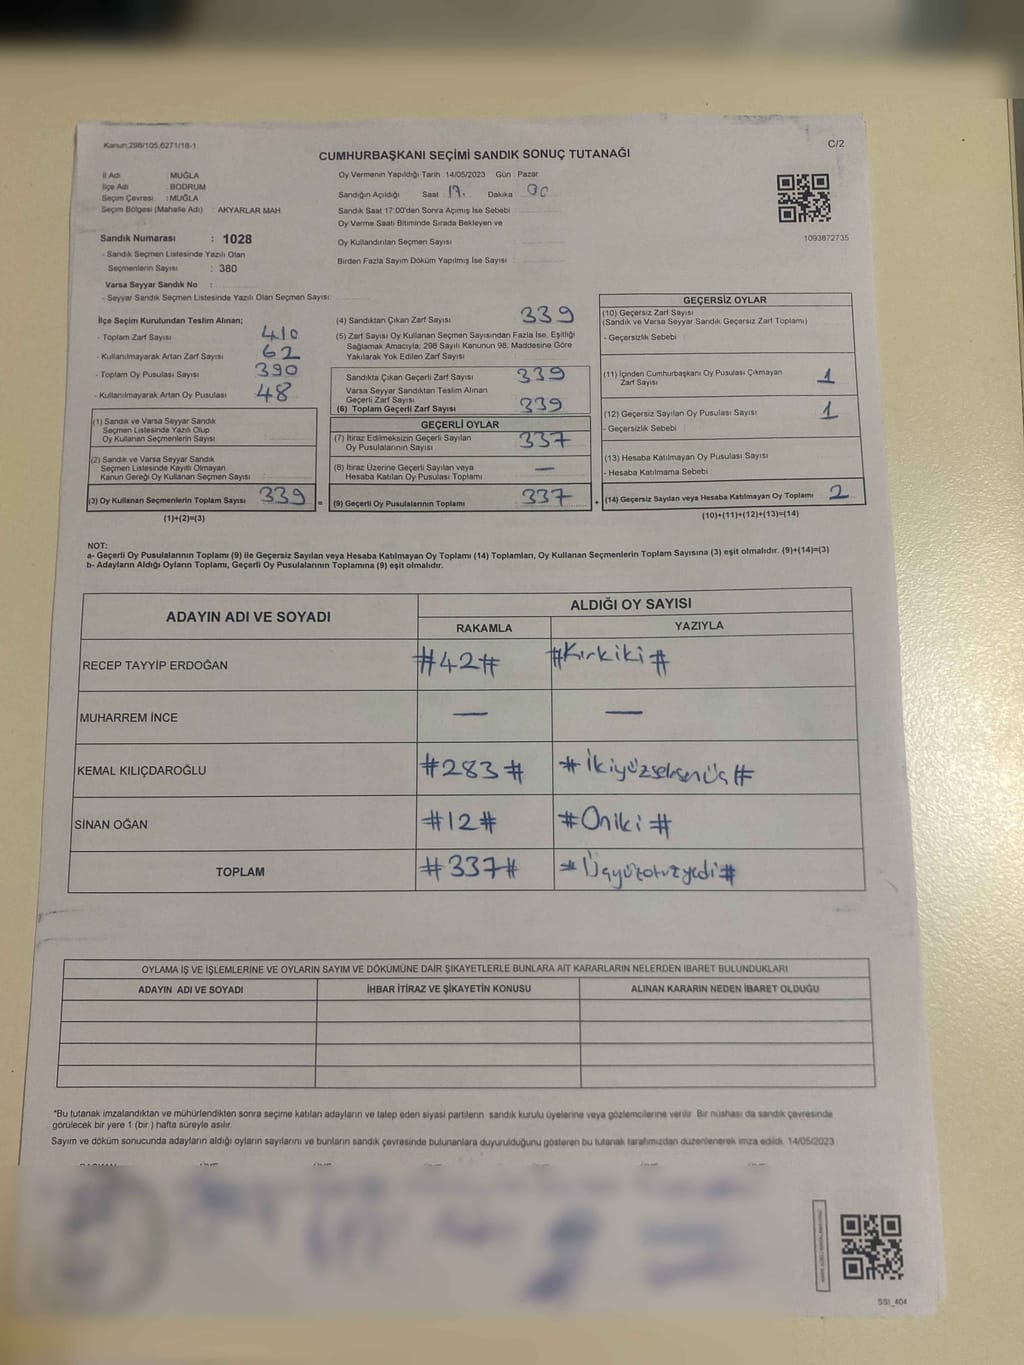 Kanun:298/105.6271/18-1
C/2
CUMHURBAŞKANI SEÇİMİ SANDIK SONUÇ TUTANAĞI
İl Adı : MUĞLA
İlçe Adı : BODRUM
Seçim Çevresi : MUĞLA
Seçim Bölgesi (Mahalle Adı) : AKYARLAR MAH
Oy Vermenin Yapıldığı Tarih :14/05/2023 Gün : Pazar
Sandığın Açıldığı Saat : 17. Dakika 00
Sandık Saat 17:00'den Sonra Açımış İse Sebebi
Oy Verme Saati Bitiminde Sırada Bekleyen ve
Oy Kullandırılan Seçmen Sayısı
Birden Fazla Sayım Döküm Yapılmış İse Sayısı :
1093872735
Sandık Numarası : 1028
- Sandık Seçmen Listesinde Yazılı Olan
Seçmenlerin Sayısı : 380
Varsa Seyyar Sandık No :
- Seyyar Sandık Seçmen Listesinde Yazılı Olan Seçmen Sayısı:
İlçe Seçim Kurulundan Teslim Alınan;
- Toplam Zarf Sayısı 410
- Kullanılmayarak Artan Zarf Sayısı 62
- Toplam Oy Pusulası Sayısı 390
- Kullanılmayarak Artan Oy Pusulası 48
(1) Sandık ve Varsa Seyyar Sandık
Seçmen Listesinde Yazılı Olup
Oy Kullanan Seçmenlerin Sayısı
(2) Sandık ve Varsa Seyyar Sandık
Seçmen Listesinde Kayıtlı Olmayan
Kanun Gereği Oy Kullanan Seçmen Sayısı
(3) Oy Kullanan Seçmenlerin Toplam Sayısı 339 =
(1)+(2)=(3)
(4) Sandıktan Çıkan Zarf Sayısı 339
(5) Zarf Sayısı Oy Kullanan Seçmen Sayısından Fazla İse, Eşitliği
Sağlamak Amacıyla, 298 Sayılı Kanunun 98. Maddesine Göre
Yakılarak Yok Edilen Zarf Sayısı
Sandıkta Çıkan Geçerli Zarf Sayısı 339
Varsa Seyyar Sandıktan Teslim Alınan
Geçerli Zarf Sayısı
(6) Toplam Geçerli Zarf Sayısı 339
GEÇERLİ OYLAR
(7) İtiraz Edilmeksizin Geçerli Sayılan
Oy Pusulalarının Sayısı 337
(8) İtiraz Üzerine Geçerli Sayılan veya
Hesaba Katılan Oy Pusulası Toplamı —
(9) Geçerli Oy Pusulalarının Toplamı 337 +
GEÇERSİZ OYLAR
(10) Geçersiz Zarf Sayısı
(Sandık ve Varsa Seyyar Sandık Geçersiz Zarf Toplamı)
- Geçersizlik Sebebi
(11) İçinden Cumhurbaşkanı Oy Pusulası Çıkmayan
Zarf Sayısı 1
(12) Geçersiz Sayılan Oy Pusulası Sayısı 1
- Geçersizlik Sebebi
(13) Hesaba Katılmayan Oy Pusulası Sayısı
- Hesaba Katılmama Sebebi
(14) Geçersiz Sayılan veya Hesaba Katılmayan Oy Toplamı 2
(10)+(11)+(12)+(13)=(14)
NOT:
a- Geçerli Oy Pusulalarının Toplamı (9) ile Geçersiz Sayılan veya Hesaba Katılmayan Oy Toplamı (14) Toplamları, Oy Kullanan Seçmenlerin Toplam Sayısına (3) eşit olmalıdır. (9)+(14)=(3)
b- Adayların Aldığı Oyların Toplamı, Geçerli Oy Pusulalarının Toplamına (9) eşit olmalıdır.
ADAYIN ADI VE SOYADI
ALDIĞI OY SAYISI
RAKAMLA YAZIYLA
RECEP TAYYİP ERDOĞAN #42# #Kırkiki#
MUHARREM İNCE — —
KEMAL KILIÇDAROĞLU #283# #İkiyüzseksenüç#
SİNAN OĞAN #12# #Oniki#
TOPLAM #337# #Üçyüzotuzyedi#
OYLAMA İŞ VE İŞLEMLERİNE VE OYLARIN SAYIM VE DÖKÜMÜNE DAİR ŞİKAYETLERLE BUNLARA AİT KARARLARIN NELERDEN İBARET BULUNDUKLARI
ADAYIN ADI VE SOYADI İHBAR İTİRAZ VE ŞİKAYETİN KONUSU ALINAN KARARIN NEDEN İBARET OLDUĞU
*Bu tutanak imzalandıktan ve mühürlendikten sonra seçime katılan adayların ve talep eden siyasi partilerin sandık kurulu üyelerine veya gözlemcilerine verilir. Bir nüshası da sandık çevresinde
görülecek bir yere 1 (bir ) hafta süreyle asılır.
Sayım ve döküm sonucunda adayların aldığı oyların sayılarını ve bunların sandık çevresinde bulunanlara duyurulduğunu gösteren bu tutanak tarafımızdan düzenlenerek imza edildi. 14/05/2023
SSI_404